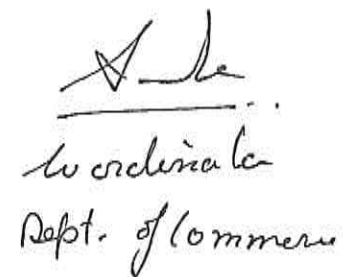 Coordinator
Dept. of Commerce